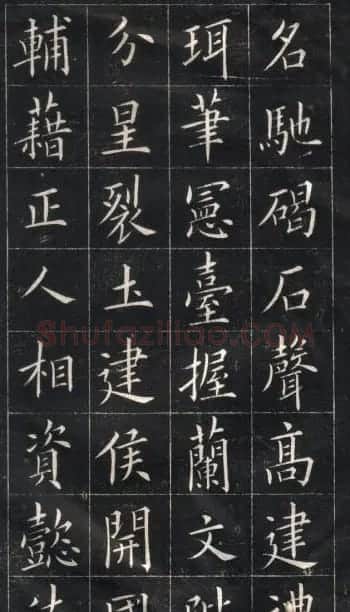 名馳碣石聲高建
珥筆憲臺握蘭文
分星裂土建侯開國
輔藉正人相資懿
Shufaziliao.com